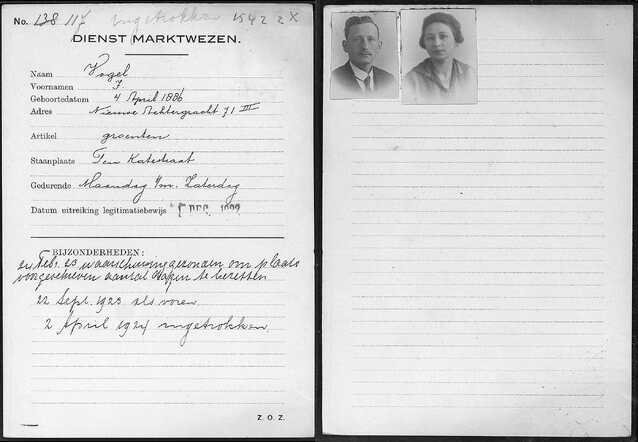 No. 138 117 ingetrokken 1942 2X
DIENST MARKTWEZEN.
Naam Vogel
Voornamen J.
Geboortedatum 4 April 1886
Adres Nieuwe Achtergracht 71 III
Artikel groenten
Staanplaats Ten Katestraat
Gedurende Maandag t/m. Zaterdag
Datum uitreiking legitimatiebewijs DEC. 1922
BIJZONDERHEDEN:
Febr. 23 waarschuwing gezonden om plaats
voorgeschreven aantal dagen te bezetten
22 Sept. 1923 als voren.
2 April 1924 ingetrokken.
Z. O. Z.